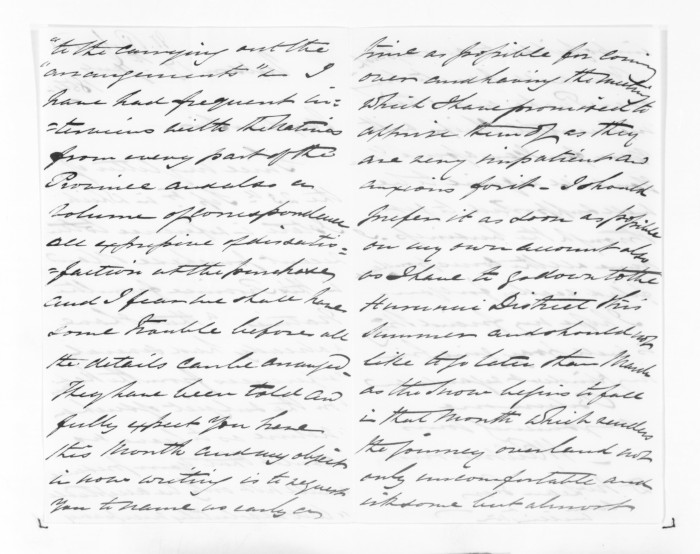 "to the carrying out the
"arrangements" &c I
have had frequent in=
=terviews with the Natives
from every part of the
Province and also a
volume of correspondence
all expressive of dissatis=
=faction at the purchases
and I fear we shall have
some trouble before all
the details can be arranged.
They have been told and
fully expect you here
this Month and my object
in now writing is to request
you to name as early a
time as possible for coming
over and having the meeting
which I have promised to
apprize them of, as they
are very impatient and
anxious for it - I should
prefer it as soon as possible
on my own account also
as I have to go down to the
Hurunui District this
Summer and should not
like to go later than March
as the Snow begins to fall
in that Month which renders
the journey overland not
only uncomfortable and
irksome but almost